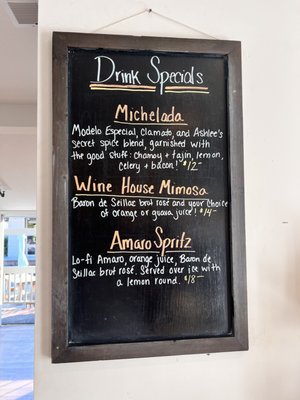 Drink Specials
Michelada
Modelo Especial, Clamato, and Ashlee's
secret spice blend, garnished with
the good stuff: chamoy + tajin, lemon,
celery + bacon! $12-
Wine House Mimosa
Baron de Seillac brut rosé and your choice
of orange or guava juice! $14-
Amaro Spritz
Lo-fi Amaro, orange juice, Baron de
Seillac brut rosé. Served over ice with
a lemon round. $18-